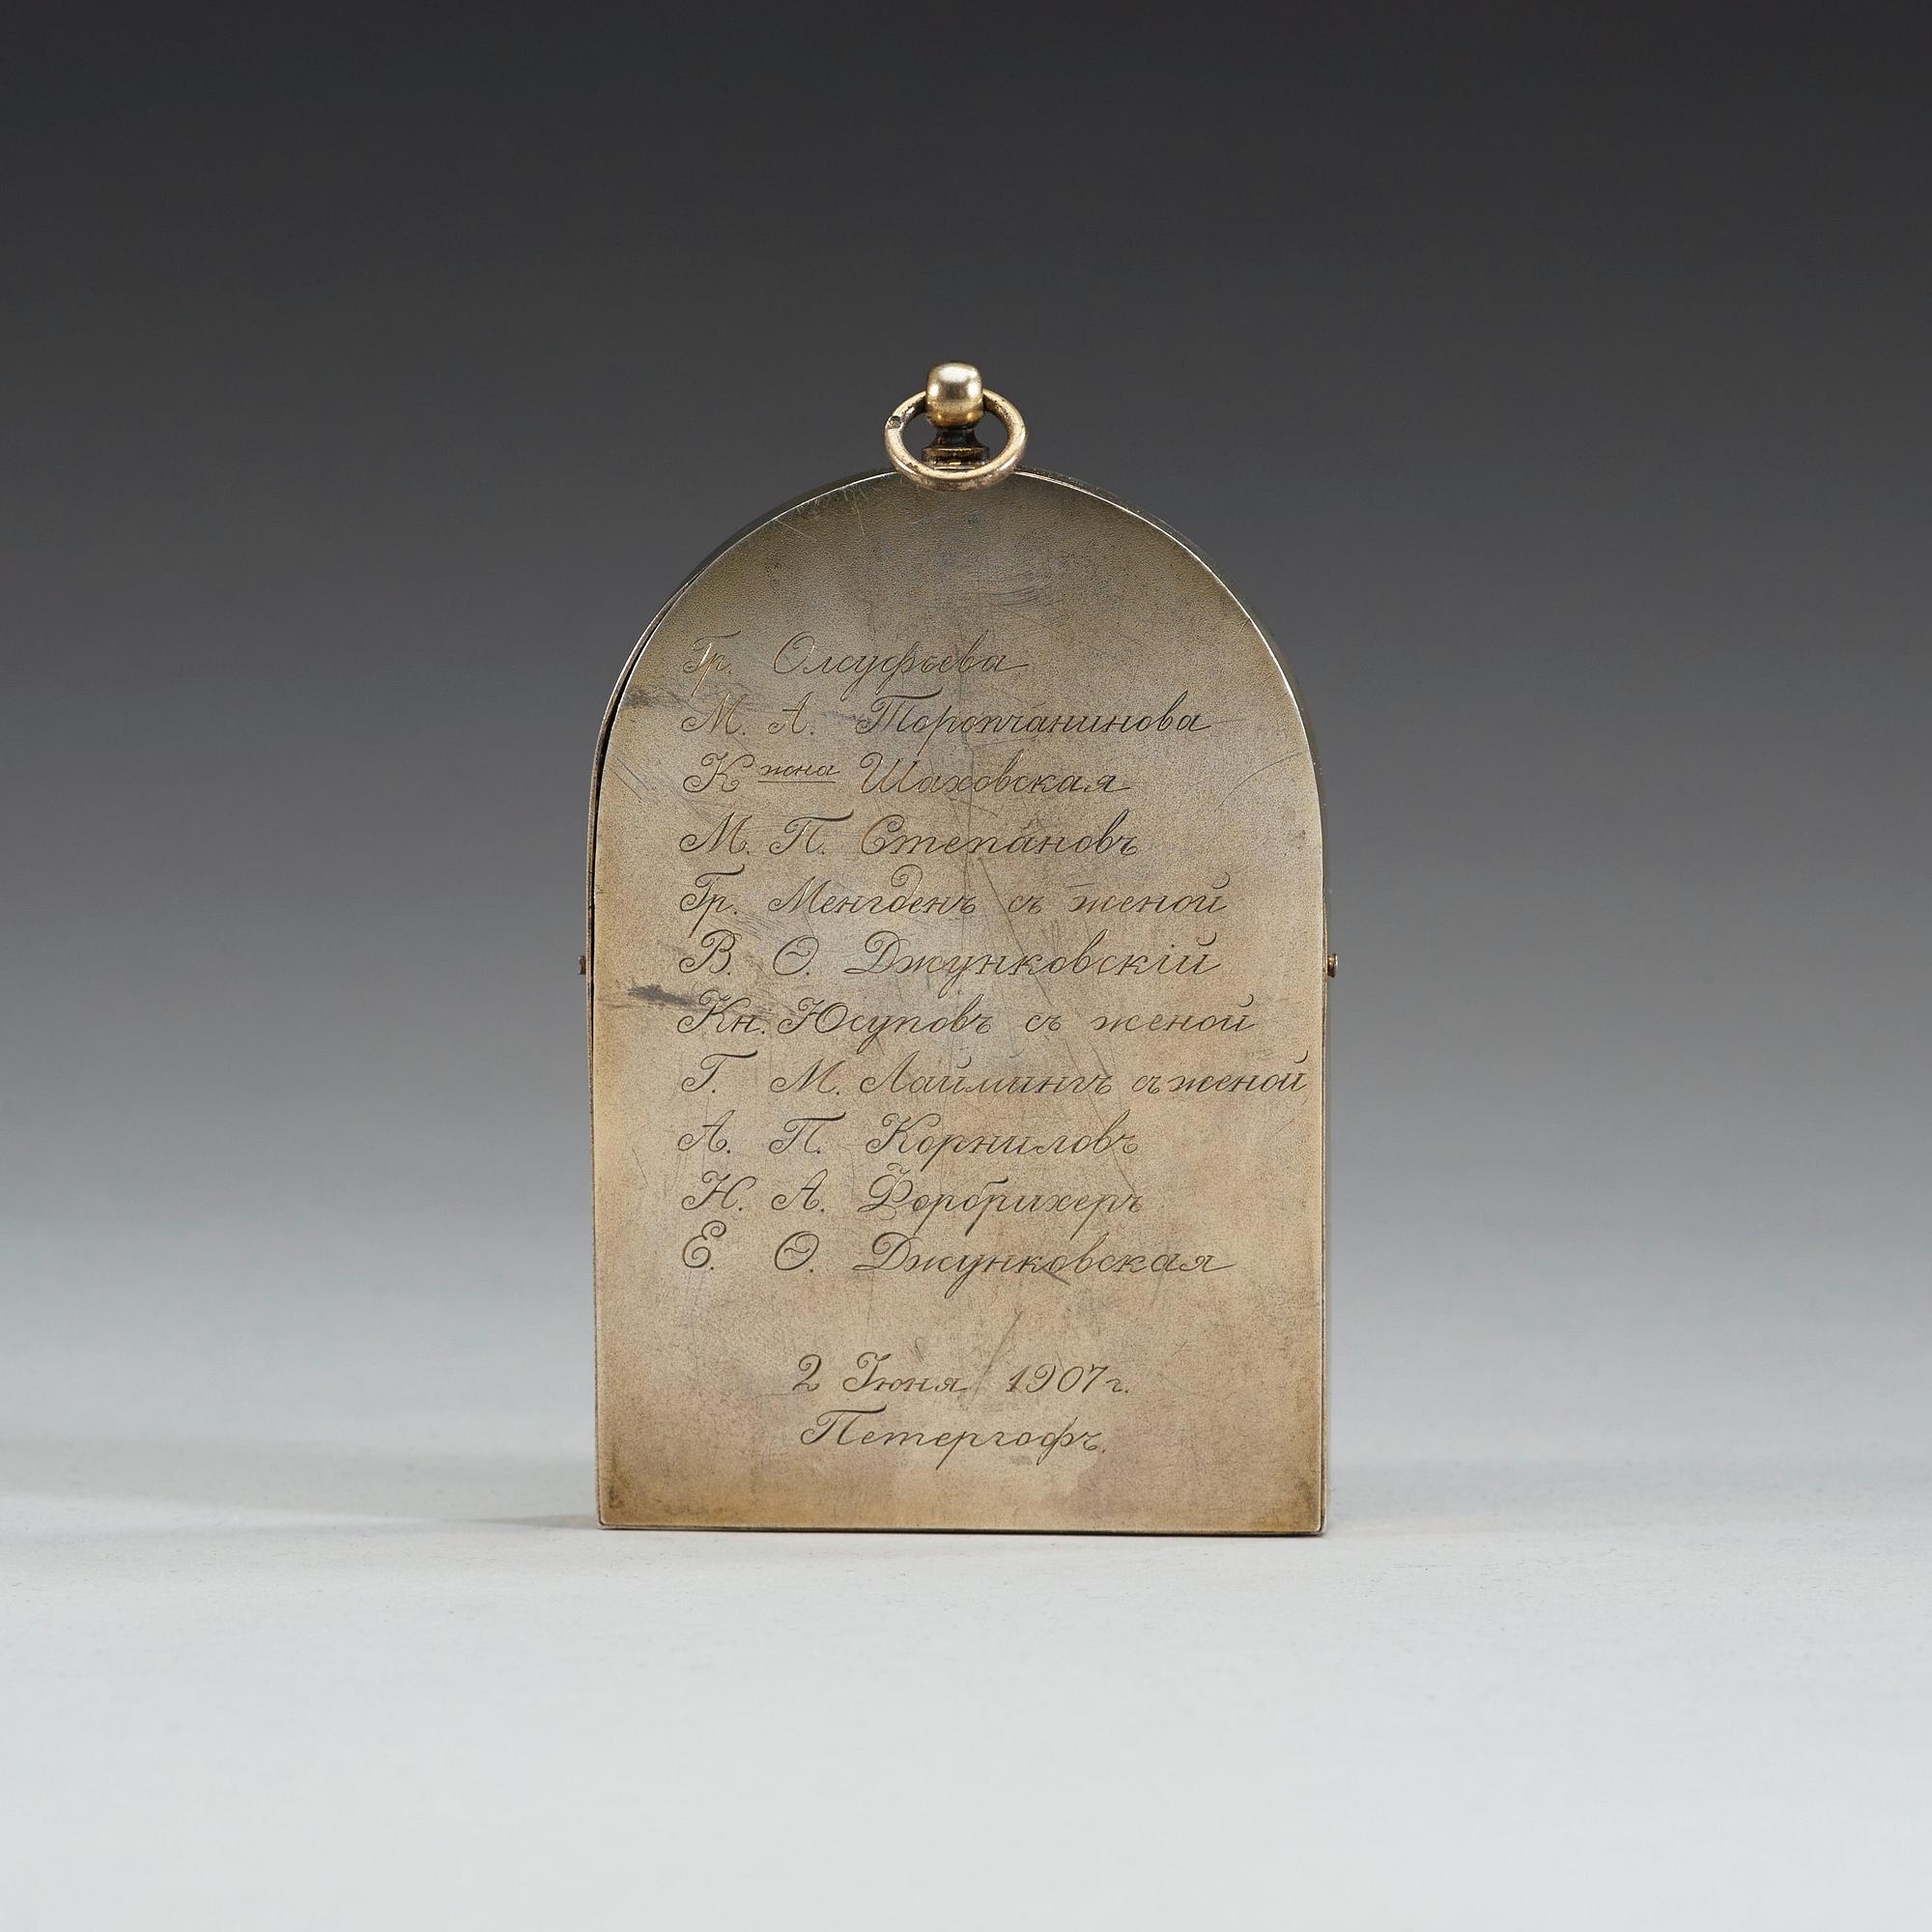 Гр. Олсуфьева
М. А. Торопчанинова
Кжна Шаховская
М. П. Степановъ
Гр. Менгденъ съ женой
В. Ѳ. Джунковскій
Кн. Юсуповъ съ женой
Г. М. Лаймингъ съ женой
А. П. Корниловъ
Н. А. Форбрихеръ
Е. Ѳ. Джунковская
2 Iюня 1907 г.
Петергофъ.